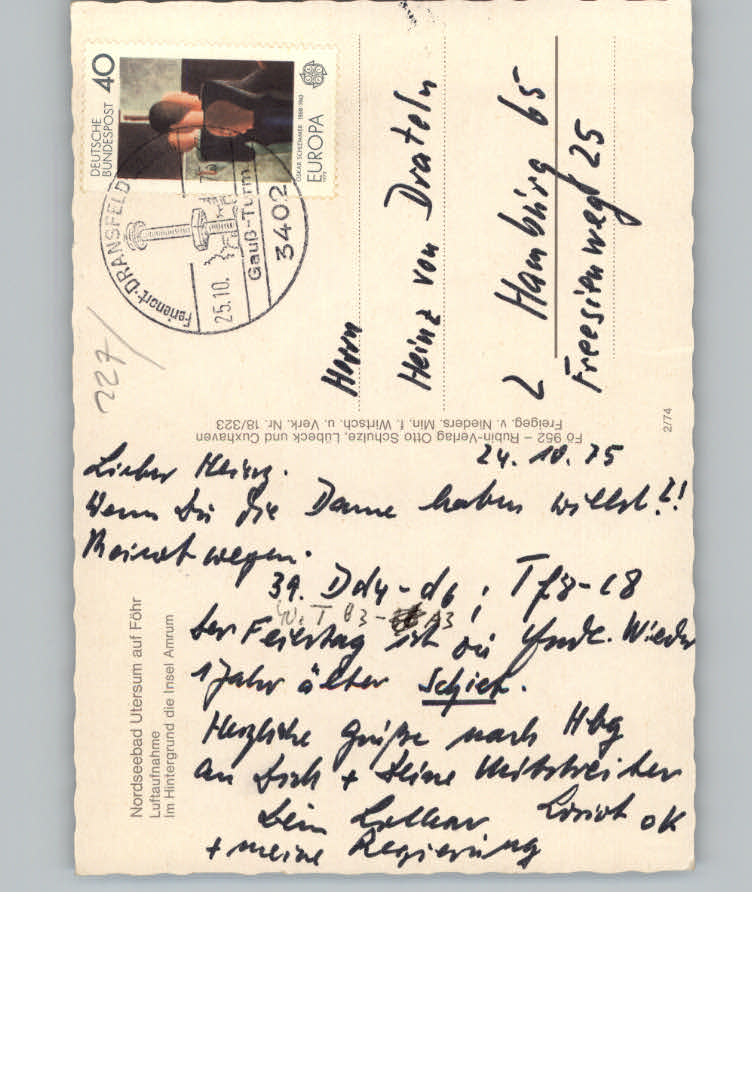 DEUTSCHE
BUNDESPOST 40
OSKAR SCHLEMMER 1888-1943
EUROPA
Ferienort · DRANSFELD
25.10.
Gauß-Turm
3402
227/
Herrn
Heinz von Drateln
2 Hamburg 65
Freesienweg 25
Fö 952 – Rubin-Verlag Otto Schulze, Lübeck und Cuxhaven
Freigeg. v. Nieders. Min. f. Wirtsch. u. Verk. Nr. 18/323
2/74
24.10.75
Lieber Heinz.
Wenn Du die Dame haben willst?!
Meinetwegen.
39. Dd4-d6; Tf8-c8
T B3- A3
Der Feiertag ist zu Ende. Wieder
1 Jahr älter Schiet.
Herzliche Grüße nach Hbg
an Dich + Deine Mitstreiter
Dein Lothar
+ meine Regierung
Nordseebad Utersum auf Föhr
Luftaufnahme
Im Hintergrund die Insel Amrum